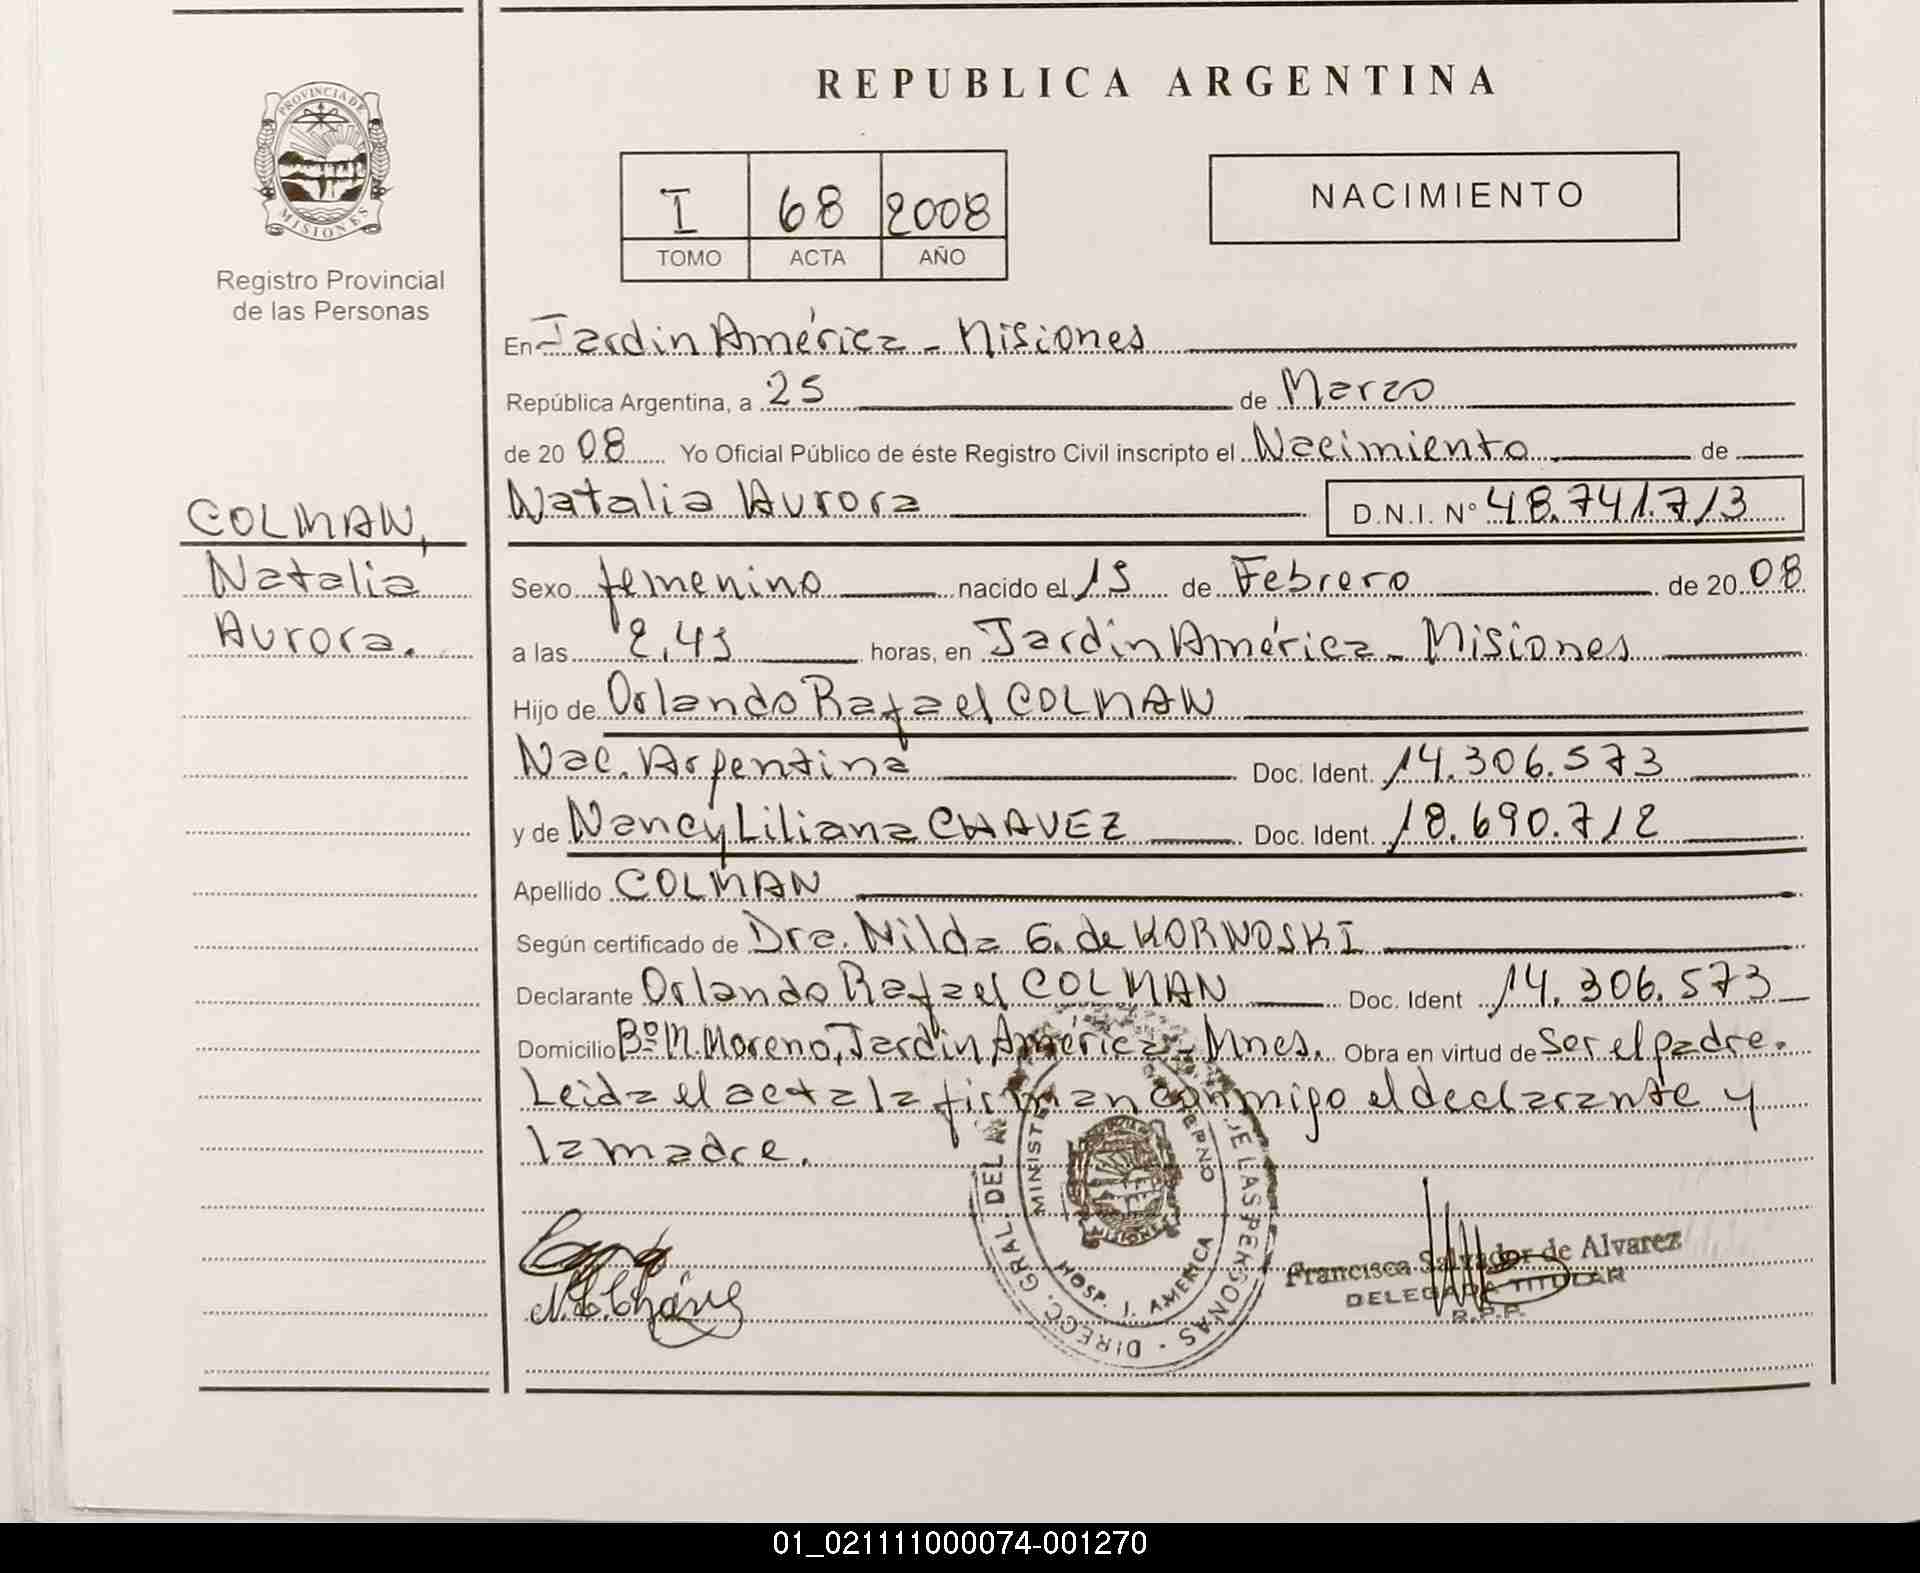 PROVINCIA DE
MISIONES
Registro Provincial
de las Personas
COLMAN,
Natalia
Aurora.
REPUBLICA ARGENTINA
I 68 2008
TOMO ACTA AÑO
NACIMIENTO
En Jardin América - Misiones
República Argentina, a 25 de Marzo
de 20 08 Yo Oficial Público de éste Registro Civil inscripto el Nacimiento de
Natalia Aurora D.N.I. N° 48.741.713
Sexo femenino nacido el 15 de Febrero de 20 08
a las 2,45 horas, en Jardin América - Misiones
Hijo de Orlando Rafael COLMAN
Nac. Argentina Doc. Ident. 14.306.573
y de Nancy Liliana CHAVEZ Doc. Ident. 18.690.712
Apellido COLMAN
Según certificado de Dra. Nilda G. de KORNOSKI
Declarante Orlando Rafael COLMAN Doc. Ident 14.306.573
Domicilio Bº M. Moreno, Jardin América - Mnes. Obra en virtud de Ser el padre.
Leida el acta la firman conmigo el declarante y
la madre.
DIRECC. GRAL DEL DE LAS PERSONAS
HOSP. J. AMERICA
MISIONES
N. L. Cháves
Francisca Salvador de Alvarez
DELEGADA TITULAR
R.P.P.
01_021111000074-001270